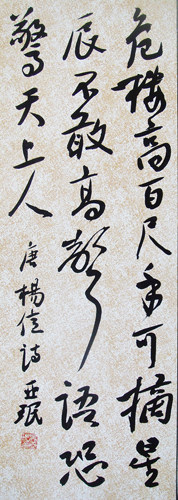 危樓高百尺手可摘星
辰不敢高聲語恐
驚天上人
唐楊億詩亞珉